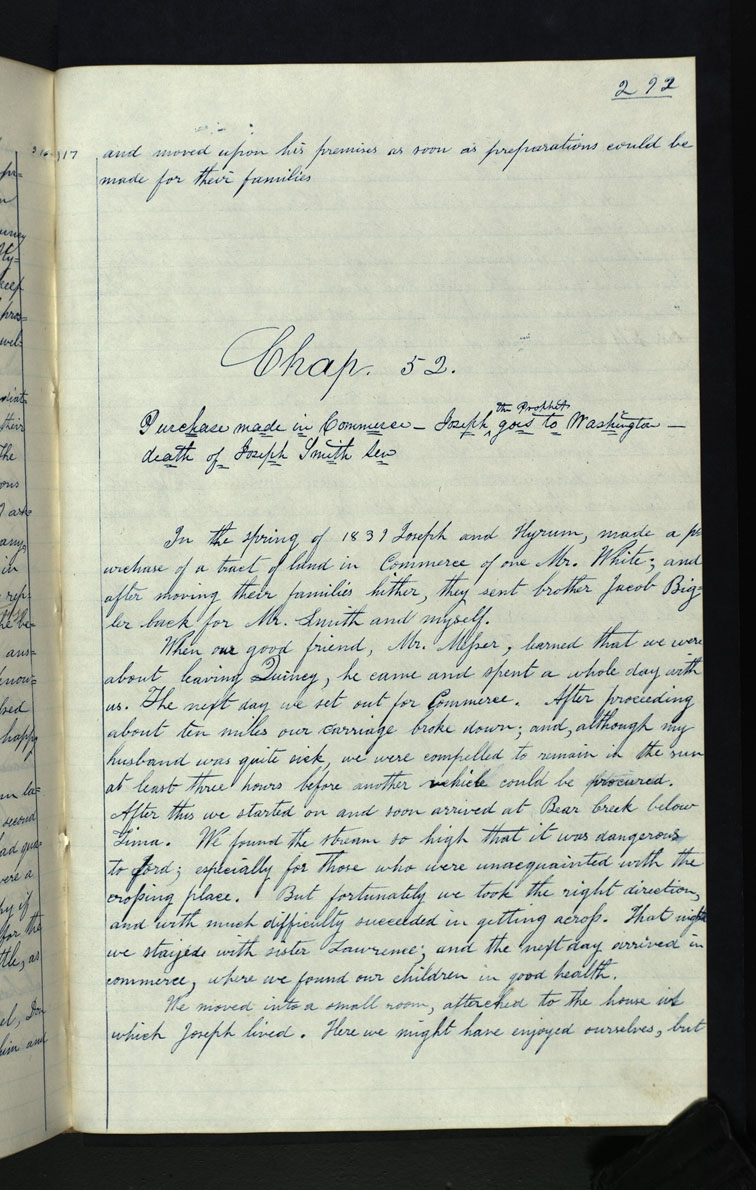 292
and moved upon his premises as soon as preparations could be
made for their families
Chap. 52.
the Prophet
Purchase made in Commerce — Joseph ^ goes to Washington —
death of Joseph Smith Sen
In the spring of 1839 Joseph and Hyrum, made a pu
urchase of a tract of land in Commerce of one Mr. White; and
after moving their families hither, they sent brother Jacob Big=
ler back for Mr. Smith and myself.
When our good friend, Mr. Messer, learned that we were
about leaving Quincy, he came and spent a whole day with
us. The next day we set out for Commerce. After proceeding
about ten miles our carriage broke down; and, although my
husband was quite sick, we were compelled to remain in the sun
at least three hours before another vehicle could be procured.
After this we started on and soon arrived at Bear Creek below
Lima. We found the stream so high that it was dangerous
to ford; especially for those who were unacquainted with the
crossing place. But fortunately we took the right direction,
and with much difficulty succeeded in getting across. That night
we stayed with sister Lawrence; and the next day arrived in
commerce, where we found our children in good health.
We moved into a small room, attached to the house in
which Joseph lived. Here we might have enjoyed ourselves, but